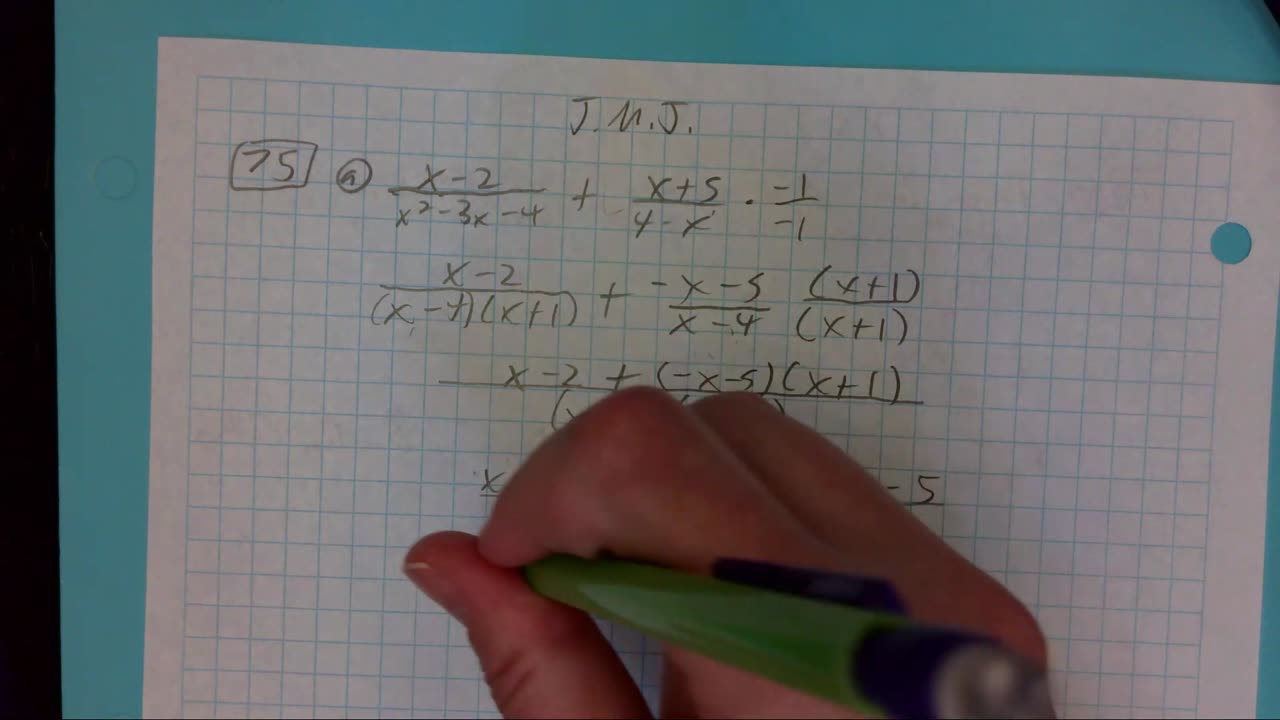 J.M.J.
75 a x-2/x²-3x-4 + x+5/4-x · -1/-1
x-2/(x-4)(x+1) + -x-5/x-4 (x+1)/(x+1)
x-2 + (-x-5)(x+1)
x - 5